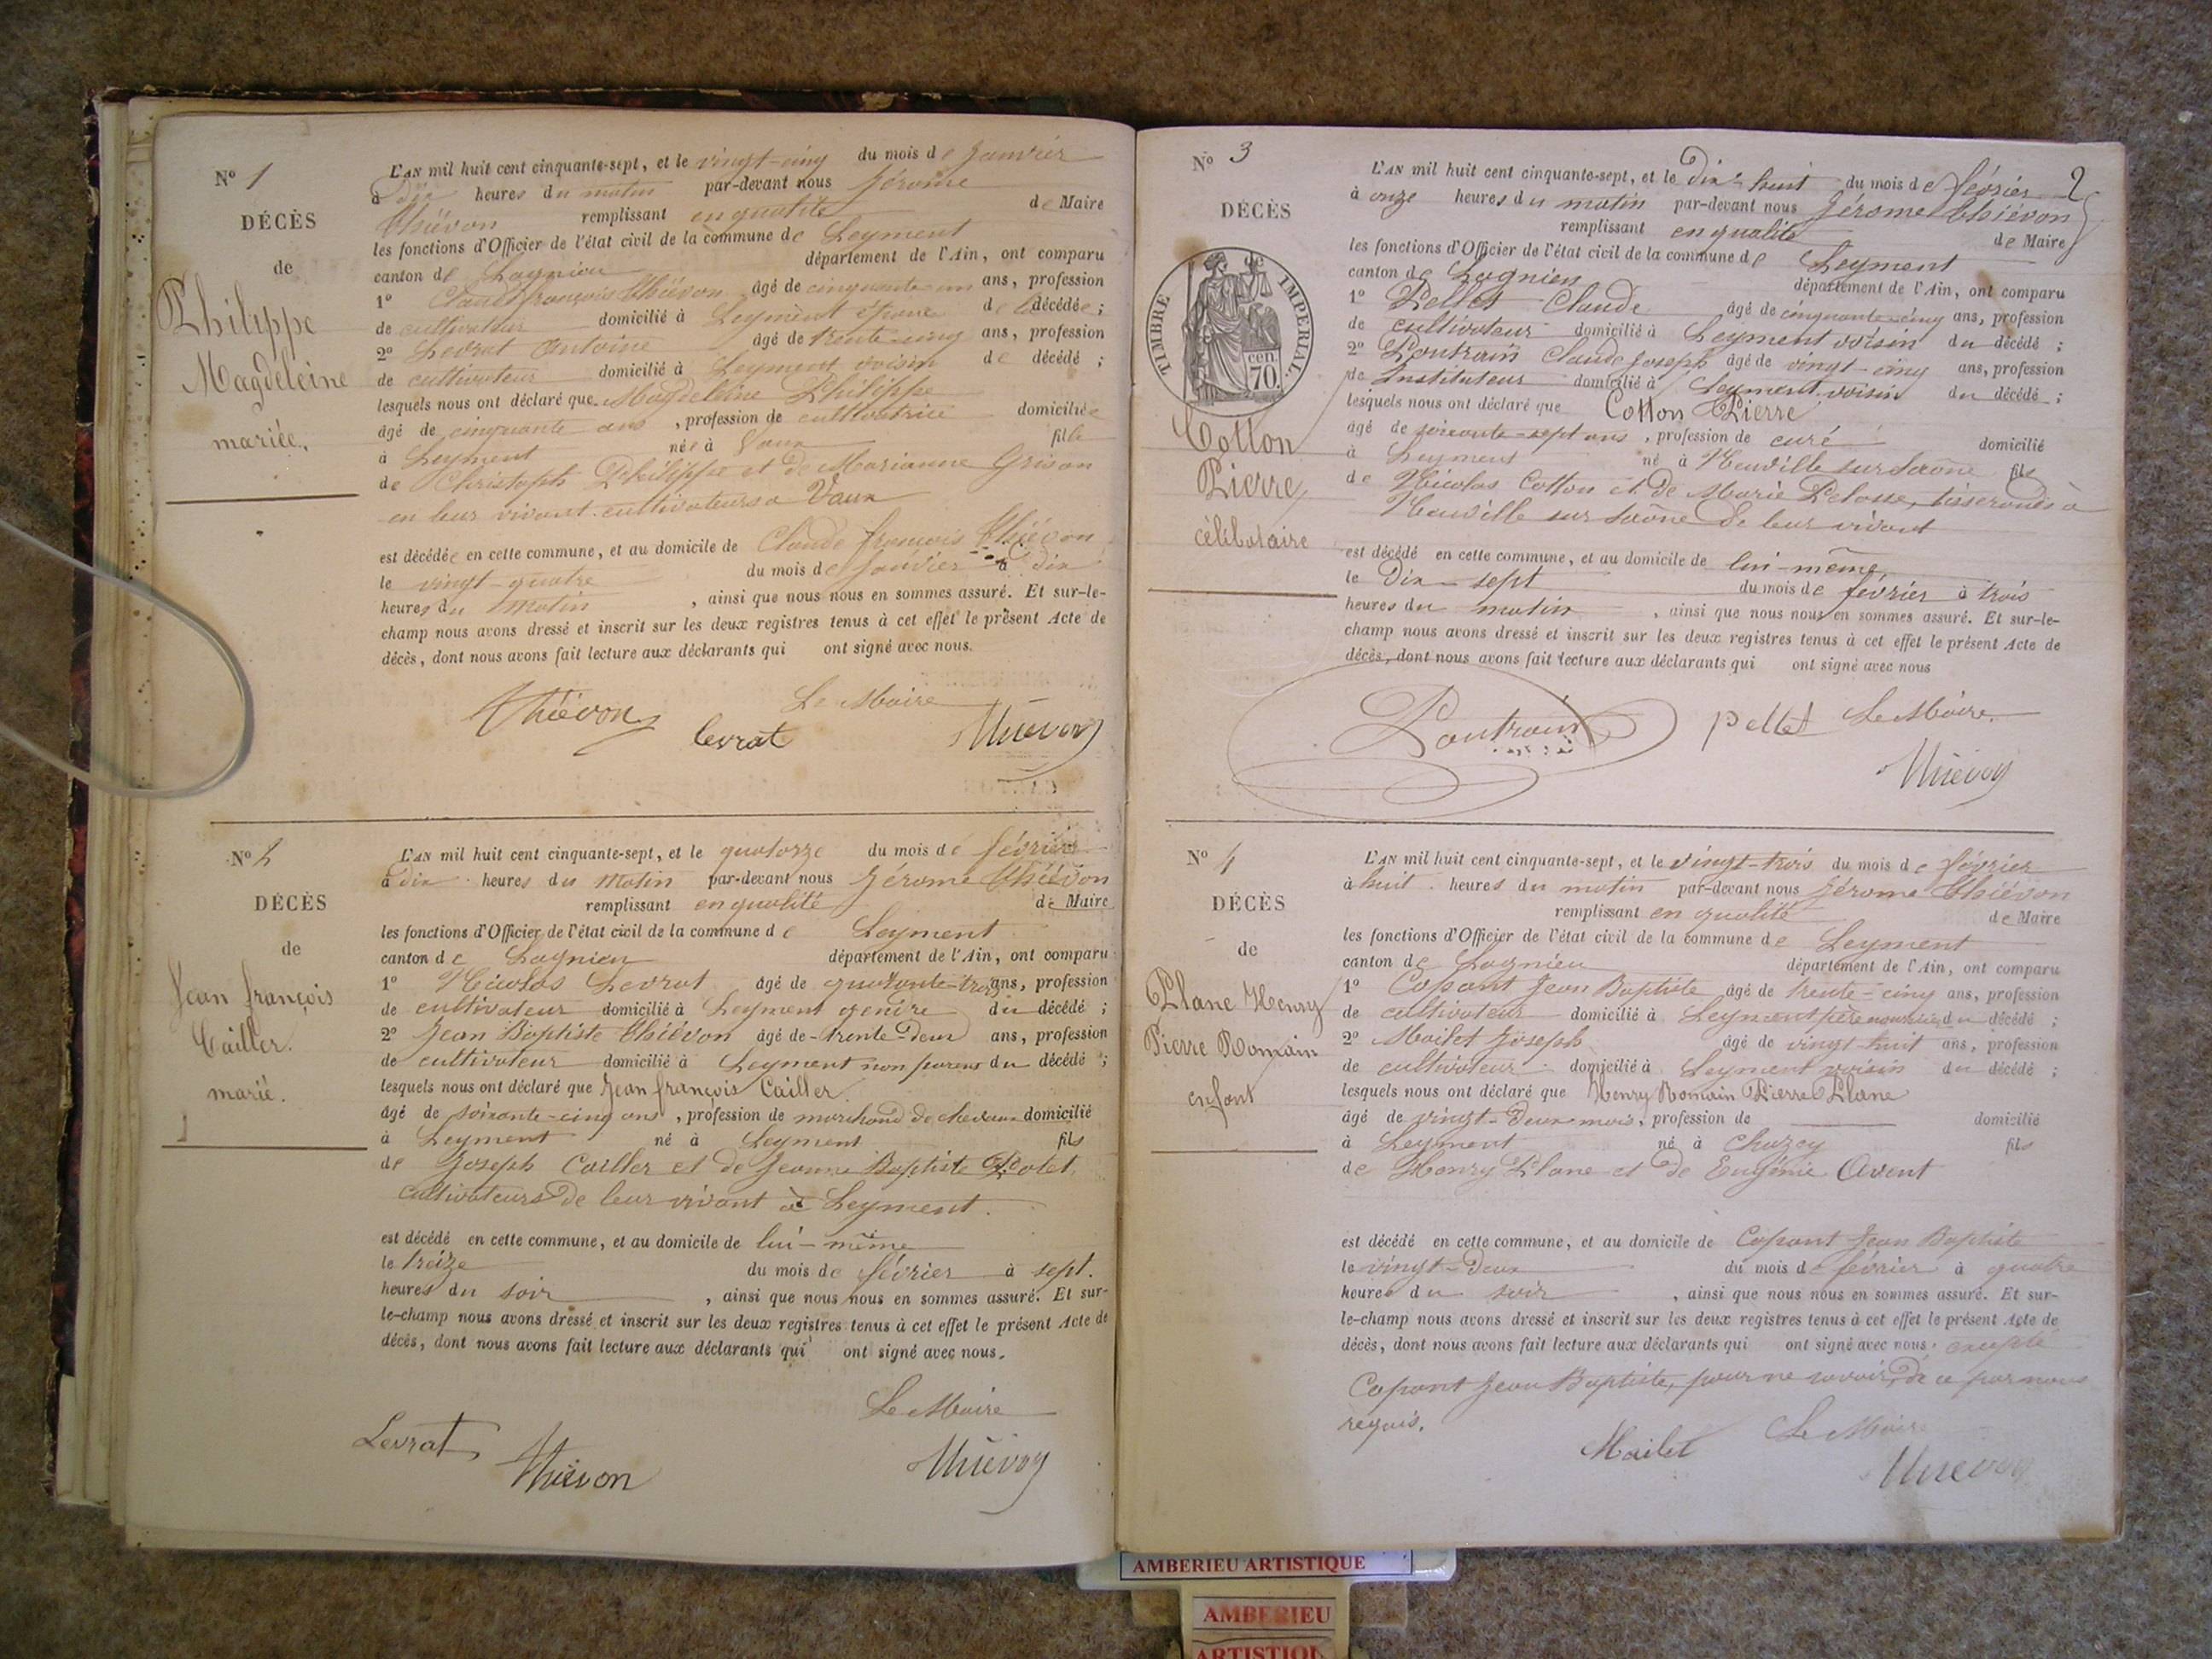 Nº 1
DÉCÈS
de
Philippe
Magdeleine
mariée.
L'AN mil huit cent cinquante-sept, et le vingt-cinq du mois de Janvier
à Dix heures du matin par-devant nous Jérome
Thiévon remplissant en qualité de Maire
les fonctions d'Officier de l'état civil de la commune de Leyment
canton de Lagnieu département de l'Ain, ont comparu
1º Claude françois Thiévon âgé de cinquante-un ans, profession
de cultivateur domicilié à Leyment époux de la décédée ;
2º Levrat Antoine âgé de trente-cinq ans, profession
de cultivateur domicilié à Leyment voisin de décédé ;
lesquels nous ont déclaré que Magdeleine Philippe
âgé de cinquante ans , profession de cultivatrice domiciliée
à Leyment née à Vaux fille
de Christoph Philippe et de Marianne Grison
en leur vivant cultivateurs à Vaux
est décédée en cette commune, et au domicile de Claude françois Thiévon
le vingt-quatre du mois de Janvier à Dix
heures du matin , ainsi que nous nous en sommes assuré. Et sur-le-
champ nous avons dressé et inscrit sur les deux registres tenus à cet effet le présent Acte de
décès, dont nous avons fait lecture aux déclarants qui ont signé avec nous.
Le Maire
Thiévon levrat Thiévon
Nº 2
DÉCÈS
de
Jean françois
Cailler.
marié.
L'AN mil huit cent cinquante-sept, et le quatorze du mois de février
à dix heures du matin par-devant nous Jérome Thiévon
remplissant en qualité de Maire
les fonctions d'Officier de l'état civil de la commune de Leyment
canton de Lagnieu département de l'Ain, ont comparu
1º Nicolas Levrat âgé de quarante-trois ans, profession
de cultivateur domicilié à Leyment gendre du décédé ;
2º Jean Baptiste Thiévon âgé de trente-deux ans, profession
de cultivateur domicilié à Leyment non parens du décédé ;
lesquels nous ont déclaré que Jean françois Cailler
âgé de soixante-cinq ans , profession de marchand de chevaux domicilié
à Leyment né à Leyment fils
de Joseph Cailler et de Jeanne Baptiste
cultivateurs de leur vivant à Leyment.
est décédé en cette commune, et au domicile de lui-même
le treize du mois de février à sept.
heures du soir , ainsi que nous nous en sommes assuré. Et sur-
le-champ nous avons dressé et inscrit sur les deux registres tenus à cet effet le présent Acte de
décès, dont nous avons fait lecture aux déclarants qui ont signé avec nous.
Le Maire
Levrat Thiévon Thiévon
2
Nº 3
DÉCÈS
de
TIMBRE IMPÉRIAL.
cen.
70.
Cotton
Pierre
célibataire
L'AN mil huit cent cinquante-sept, et le Dix-huit du mois de février
à onze heures du matin par-devant nous Jérome Thiévon
remplissant en qualité de Maire
les fonctions d'Officier de l'état civil de la commune de Leyment
canton de Lagnieu département de l'Ain, ont comparu
1º Pellet Claude âgé de cinquante-cinq ans, profession
de cultivateur domicilié à Leyment voisin du décédé ;
2º Poutrain Claude Joseph âgé de vingt-cinq ans, profession
de Instituteur domicilié à Leyment voisin du décédé ;
lesquels nous ont déclaré que Cotton Pierre
âgé de soixante-sept ans , profession de curé domicilié
à Leyment né à Neuville sur Saône fils
de Nicolas Cotton et de Marie Pelosse, tisserands à
Neuville sur Saône de leur vivant
est décédé en cette commune, et au domicile de lui-même
le Dix-sept du mois de février à trois
heures du matin , ainsi que nous nous en sommes assuré. Et sur-le-
champ nous avons dressé et inscrit sur les deux registres tenus à cet effet le présent Acte de
décès, dont nous avons fait lecture aux déclarants qui ont signé avec nous
Poutrain pellet Le Maire.
Thiévon
Nº 4
DÉCÈS
de
Plane Henry
Pierre Romain
enfant
L'AN mil huit cent cinquante-sept, et le vingt-trois du mois de février
à huit heures du matin par-devant nous Jérome Thiévon
remplissant en qualité de Maire
les fonctions d'Officier de l'état civil de la commune de Leyment
canton de Lagnieu département de l'Ain, ont comparu
1º Copant Jean Baptiste âgé de trente-cinq ans, profession
de cultivateur domicilié à Leyment père nourricier du décédé ;
2º Mailet Joseph âgé de vingt-huit ans, profession
de cultivateur domicilié à Leyment voisin du décédé ;
lesquels nous ont déclaré que Henry Romain Pierre Plane
âgé de vingt-deux mois, profession de domicilié
à Leyment né à Chazey fils
de Henry Plane et de Eugénie Avent
est décédé en cette commune, et au domicile de Copant Jean Baptiste
le vingt-deux du mois de février à quatre
heures du soir , ainsi que nous nous en sommes assuré. Et sur-
le-champ nous avons dressé et inscrit sur les deux registres tenus à cet effet le présent Acte de
décès, dont nous avons fait lecture aux déclarants qui ont signé avec nous. excepté
Copant Jean Baptiste, pour ne savoir, de ce par nous
requis.
Mailet Le Maire
Thiévon
AMBERIEU ARTISTIQUE
AMBERIEU
ARTISTIQ